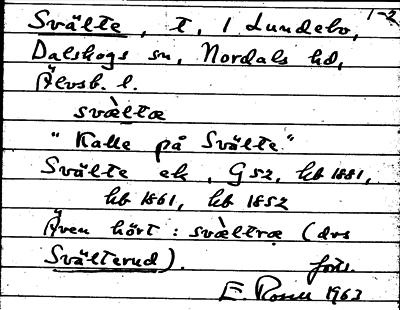 1-2
Svälte, t, 1 Lundebo,
Dalskogs sn, Nordals hd,
Älvsb. l.
svæ̀ltæ
"Kalle på Svälte"
Svälte ek, G52, hb 1881,
hb 1861, hb 1852
Även hört: svæ̀ltræ (dvs
Svälterud).
forts.
E. Rosell 1963